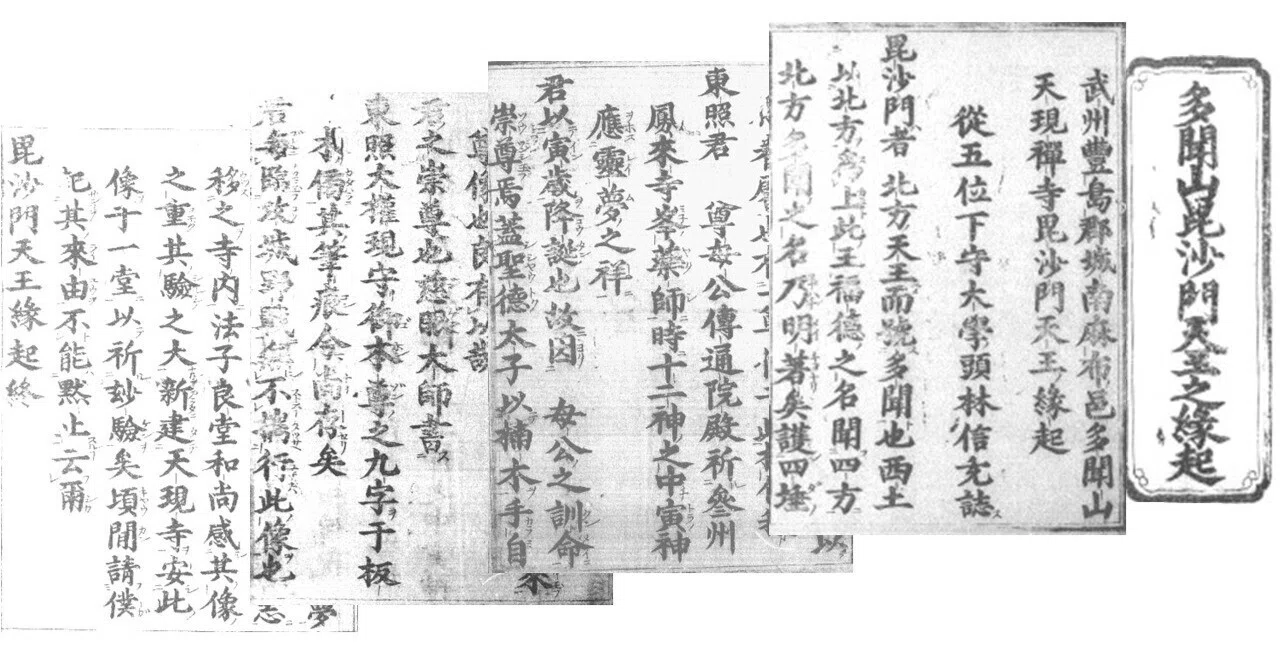 多聞山毘沙門天王之縁起
武州豐島郡城南麻布邑多聞山
天現禪寺毘沙門天王縁起
從五位下守大學頭林信充誌
毘沙門者北方天王而號多聞也西土
以北方為上此王福德之名聞四方
北方多聞之名乃明著矣護四埵
東照君 尊母公傳通院殿祈參州
鳳來寺峯藥師時十二神之中寅神
應靈夢之祥
君以寅歲降誕也故因 母公之訓命
崇尊焉蓋聖德太子以楠木手自
尊像也良有以哉
君之崇尊也慈眼大師書
東照大權現守御本尊之九字于板
其筆痕今尚存矣
君每臨攻城野戰無不携行此像也
移之寺内法子良堂和尚感其像
之重其驗之大新建天現寺安此
像于一堂以祈玅驗矣頃間請僕
記其來由不能黙止云爾
毘沙門天王縁起終